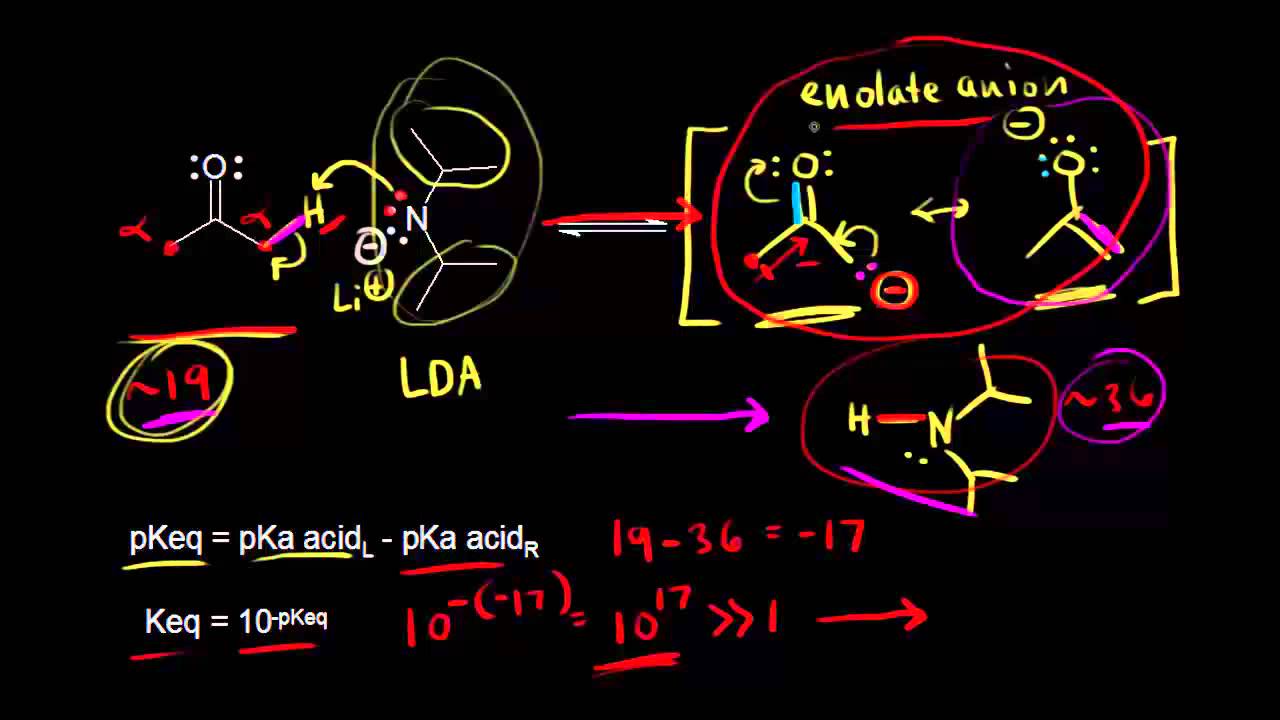 enolate anion
:O:
:O:
O
α
α
H
N
Li
LDA
~19
H N
~36
pKeq = pKa acidL - pKa acidR
19 - 36 = -17
Keq = 10-pKeq
10-(-17) = 10 17 >> 1